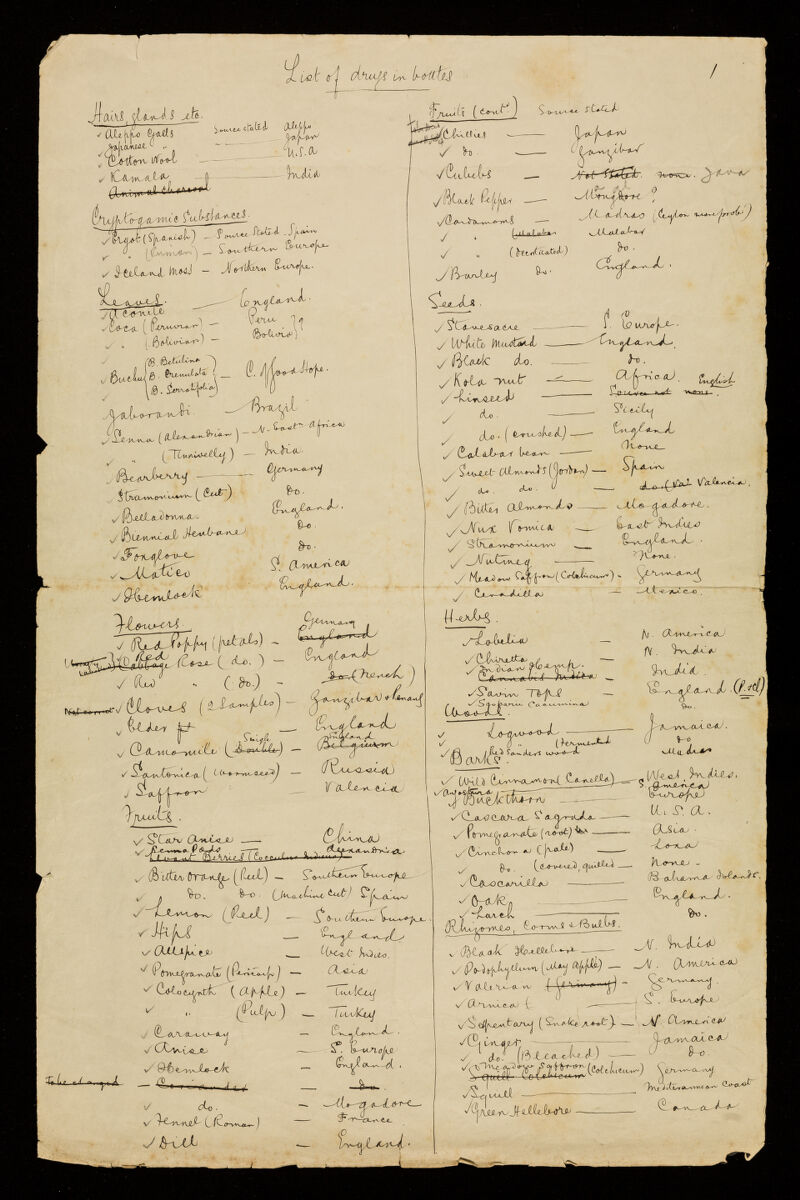 List of drugs in bottles
1
Hairs, glands etc.
✓ Aleppo Galls Source stated Aleppo
Japanese " " " Japan
✓ Cotton Wool — U.S.A
✓ Kamala — India
Animal Charcoal
Cryptogamic Substances.
✓ Ergot (Spanish) — Source Stated - Spain
✓ " (Russian) — Southern Europe
✓ Iceland Moss — Northern Europe.
Leaves.
✓ Aconite — England.
✓ Coca (Peruvian) — Peru } ?
✓ " (Bolivian) — Bolivia
✓ Buchu { B. Betulina
B. Crenulata } — C. of Good Hope.
B. Serratifolia
Jaborandi — Brazil
✓ Senna (Alexandrian) — N. Eastn Africa
✓ " (Tinnivelly) — India
✓ Bearberry — Germany
✓ Stramonium (Cut) Do.
✓ Belladonna England.
✓ Biennial Henbane Do.
✓ Foxglove Do.
✓ Matico S. America
✓ Hemlock England.
Flowers
✓ Red Poppy (petals) — England Germany
✓ Cabbage Red Rose (do.) — England
✓ Red " (do.) — do. (French)
✓ Cloves (2 Samples) — Zanzibar & Penang
✓ Elder — England
✓ Camomile (Double Single) — Belgium England
✓ Santonica (wormseed) — Russia
✓ Saffron — Valencia
Fruits.
✓ Star Anise — China
✓ Senna Pods Alexandria
Levant Berries (Cocculus Indicus)
✓ Bitter Orange (Peel) — Southern Europe
✓ do. do. (machine cut) Spain
✓ Lemon (Peel) — Southern Europe.
✓ Hips — England
✓ Allspice — West Indies.
✓ Pomegranate (Pericarp) — Asia
✓ Colocynth (Apple) — Turkey
✓ " (Pulp) — Turkey
✓ Caraway — England.
✓ Anise — S. Europe
✓ Hemlock — England.
To be changed — Coriander — Do.
✓ do. — Mogadore
✓ Fennel (Roman) — France
✓ Dill — England.
Fruits (cont) Source Stated
✓ Chillies — Japan
✓ do. — Zanzibar
✓ Cubebs — Not Stated. none. Java
✓ Black Pepper —
✓ Cardamoms — Madras (Ceylon more prob.)
✓ " (Malabar Malabar
✓ " (Decorticated) Do.
✓ Barley Do. England.
Seeds.
✓ Stavesacre — S. Europe.
✓ White Mustard — England.
✓ Black do. — do.
✓ Kola nut — Africa.
✓ Linseed — Source not none. English
✓ do. — Sicily
✓ do. (crushed) — England
✓ Calabar bean — None
✓ Sweet Almonds (Jordan) — Spain
✓ do. do. — do. (Val Valencia.
✓ Bitter Almonds — Mogadore.
✓ Nux Vomica — East Indies
✓ Stramonium — England.
✓ Nutmeg — None.
✓ Meadow Saffron (Colchicum) - Germany
✓ Cevadilla — Mexico.
Herbs.
✓ Lobelia — N. America
✓ Chiretta — N. India
✓ Indian Hemp.
Cannabis Indica — India
✓ Savin Tops — England (P. Offl)
✓ Scoparii Cacumina Do.
Woods.
✓ Logwood — Jamaica.
✓ (Fermented Do
✓ Red Sanders wood Madras
Barks.
✓ Wild Cinnamon (Canella) — West Indies.
✓ Angostura S. America
✓ Buckthorn — Europe
✓ Cascara Sagrada — U.S.A.
✓ Pomegranate (root) — Asia.
✓ Cinchona (pale) — Loxa
✓ do. (covered, quilled — None.
✓ Cascarilla — Bahama Islands.
✓ Oak — England.
✓ Larch — Do.
Rhizomes, Corms & Bulbs.
✓ Black Hellebore — N. India
✓ Podophyllum (May Apple) — N. America
✓ Valerian (Germany) — Germany.
✓ Arnica ( — S. Europe
✓ Serpentary (Snake root) — N. America
✓ Ginger Jamaica
✓ do. (Bleached) — Do.
✓ Meadow Saffron (Colchicum) Germany
Squill Colchicum
✓ Squill — Mediterranean Coast
✓ Green Hellebore — Canada